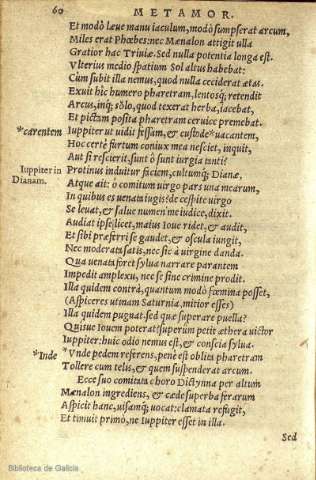 60 METAMOR.
Et modò læue manu iaculum, modò sumpserat arcum,
Miles erat Phœbes: nec Mænalon attigit ulla
Gratior hac Triuiæ. Sed nulla potentia longa est.
Vlterius medio spatium Sol altus habebat:
Cùm subit illa nemus, quod nulla ceciderat ætas.
Exuit hîc humero pharetram, lentosq; retendit
Arcus, inq; solo, quod texerat herba, iacebat,
Et pictam posita pharetram ceruice premebat.
*carentem Iuppiter ut uidit fessam, & custode *uacantem,
Hoc certè furtum coniux mea nesciet, inquit,
Aut si rescierit, sunt ô sunt iurgia tanti?
Iuppiter in Dianam. Protinus induitur faciem, cultumq; Dianæ,
Atque ait: o comitum uirgo pars una mearum,
In quibus es uenata iugis? de cespite uirgo
Se leuat, & salue numen me iudice, dixit.
Audiat ipse licet, maius Ioue ridet, & audit,
Et sibi præferri se gaudet, & oscula iungit,
Nec moderata satis, nec sic à uirgine danda.
Qua uenata foret sylua narrare parantem
Impedit amplexu, nec se sine crimine prodit.
Illa quidem contrà, quantum modò fœmina posset,
(Aspiceres utinam Saturnia, mitior esses)
Illa quidem pugnat. sed quæ superare puella?
Quisue Iouem poterat? superum petit æthera uictor
Iuppiter: huic odio nemus est, & conscia sylua.
*Inde *Vnde pedem referens, penè est oblita pharetram
Tollere cum telis, & quem suspenderat arcum.
Ecce suo comitata choro Dictynna per altum
Mænalon ingrediens, & cæde superba ferarum
Aspicit hanc, uisamq; uocat: clamata refugit,
Et timuit primò, ne Iuppiter esset in illa.
Sed
Biblioteca de Galicia